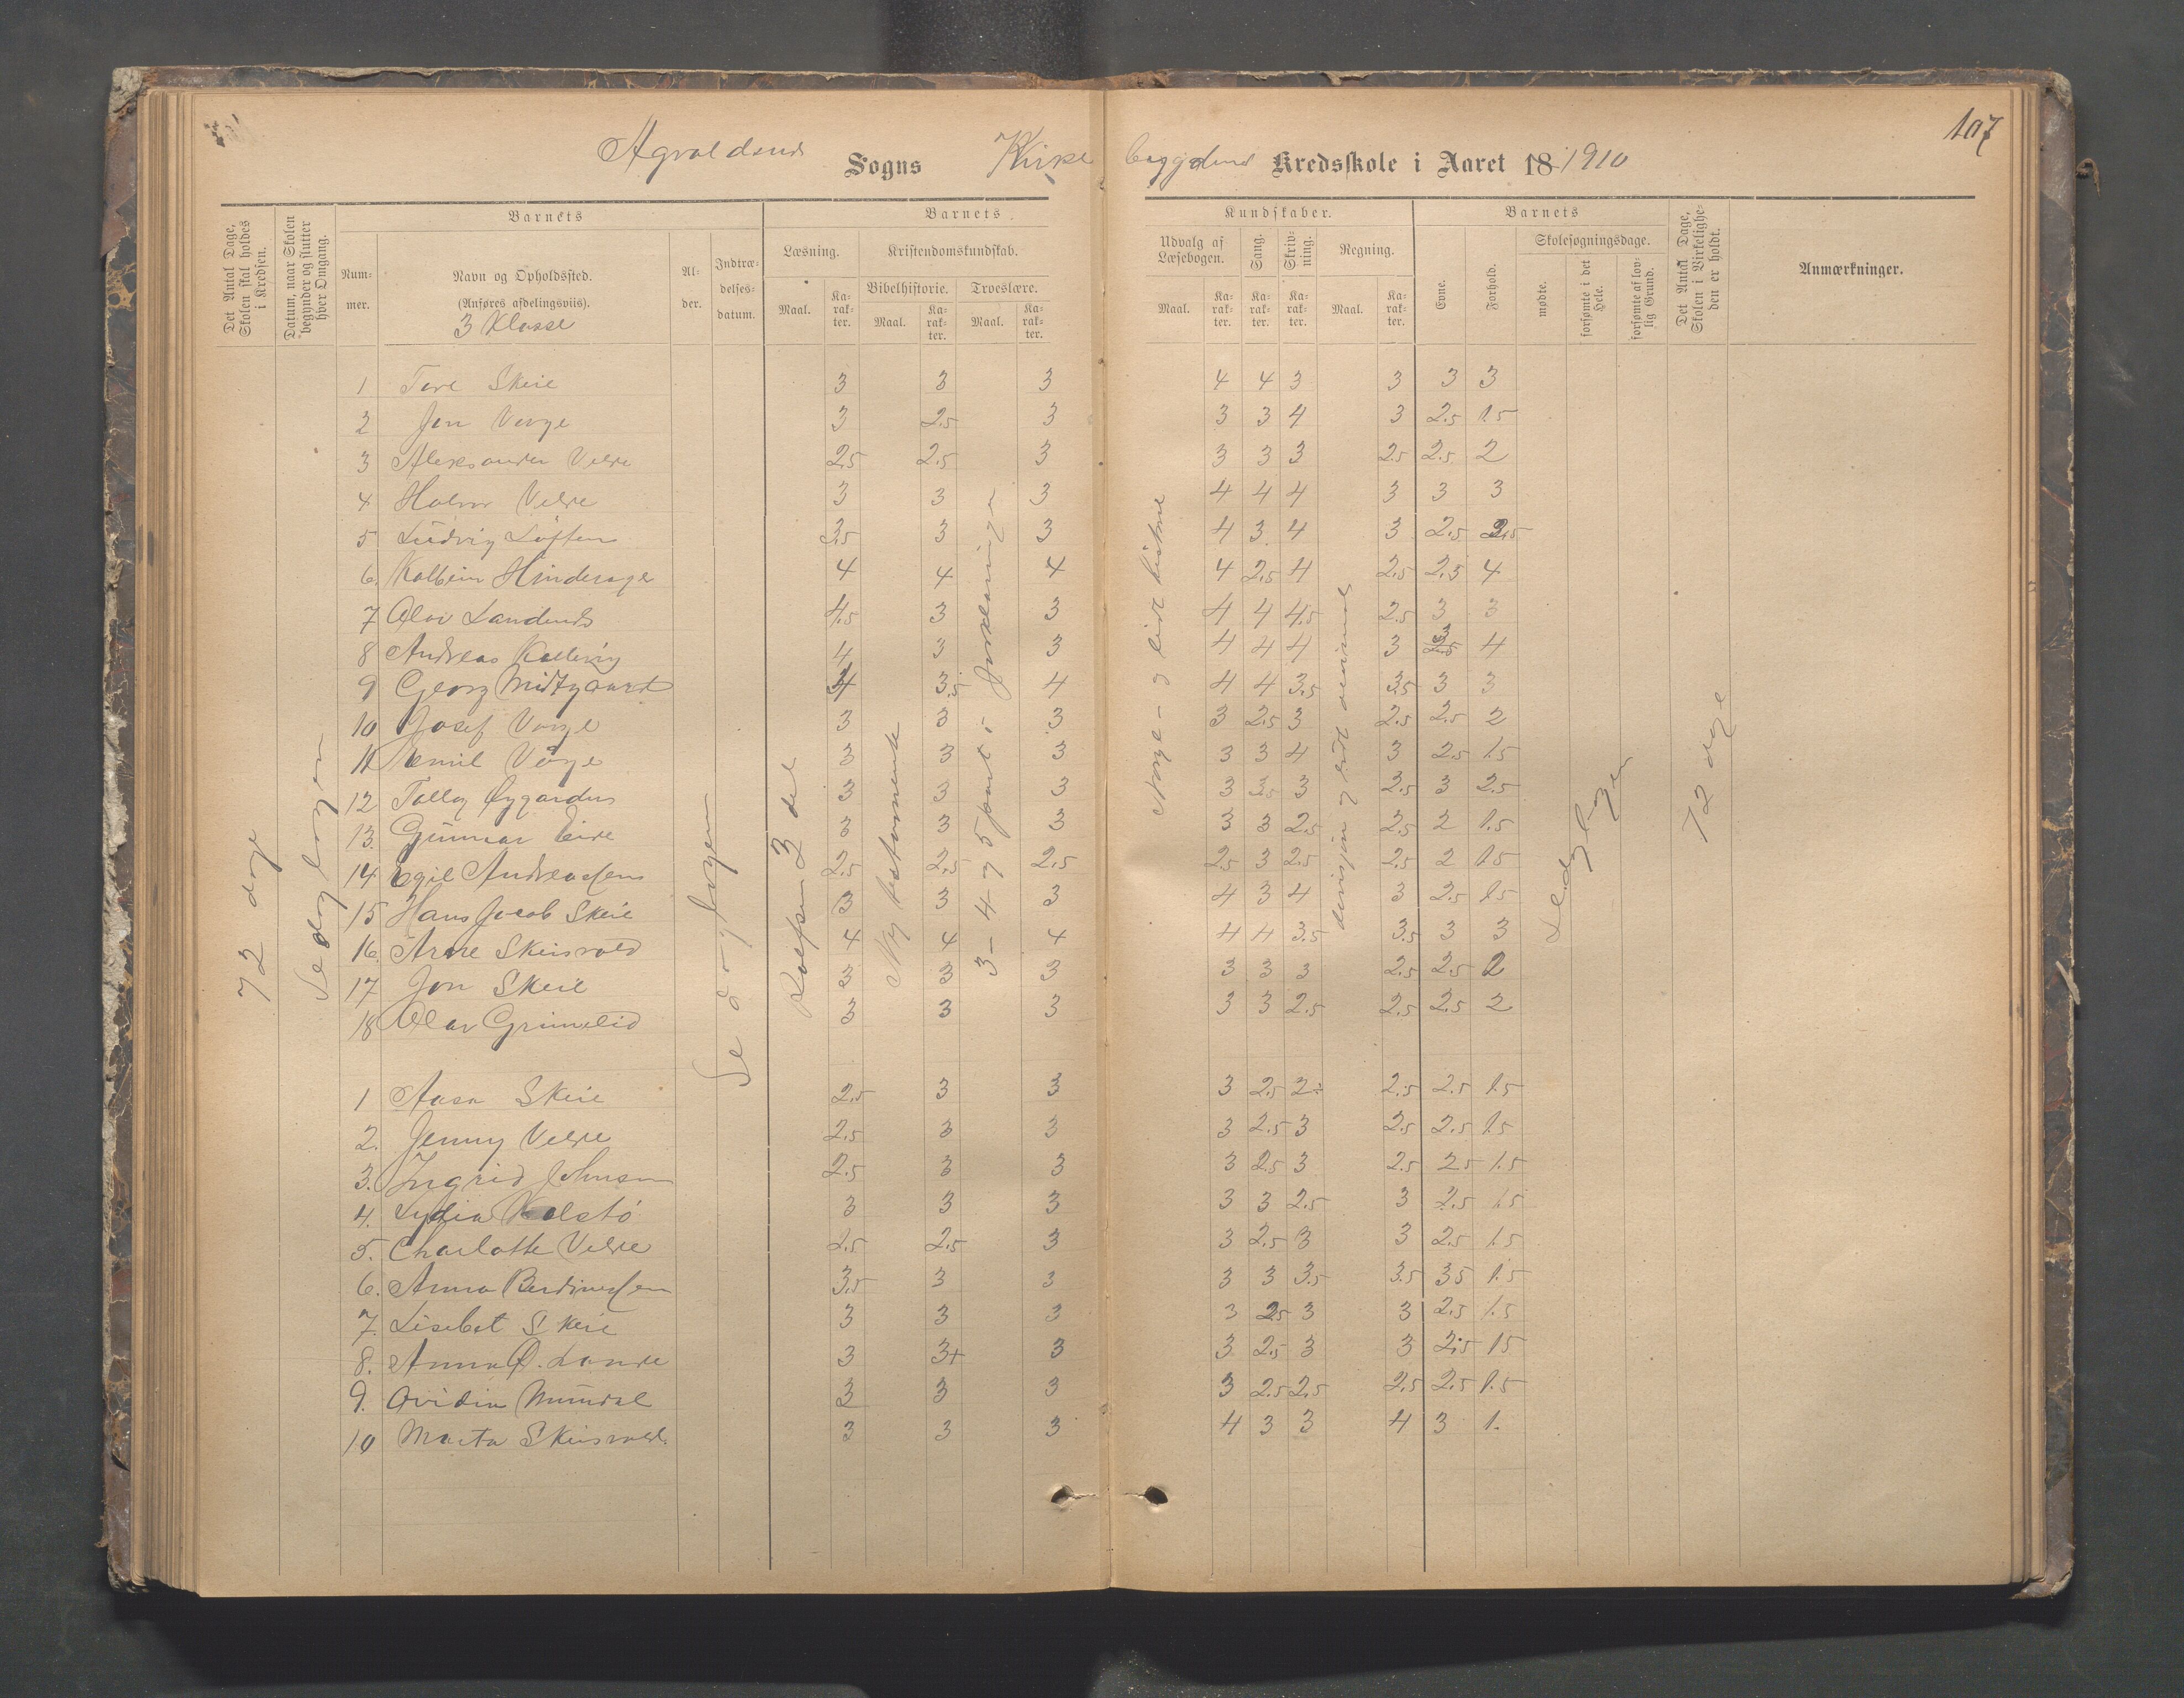 107
Sogns Kirke bygdens Kredsskole i Aaret 18 1910
Det Antal Dage, Skolen skal holdes i Kredsen.
Datum, naar Skolen begynder og slutter hver Omgang.
Barnets
Nummer.
Navn og Opholdssted.
(Anføres afdelingsviis).
3 Klasse
Alder.
Indtrædelsesdatum.
Barnets
Læsning.
Maal.
Karakter.
Kristendomskundskab.
Bibelhistorie.
Maal.
Karakter.
Troeslære.
Maal.
Karakter.
Kundskaber.
Udvalg af Læsebogen.
Maal.
Karakter.
Sang.
Karakter.
Skrivning.
Karakter.
Regning.
Maal.
Karakter.
Barnets
Evne.
Forhold.
Skolesøgningsdage.
mødte.
forsømte i det Hele.
forsømte af lovlig Grund.
Det Antal Dage, Skolen i Virkeligheden er holdt.
Anmærkninger.
72 dage
Se dagbogen
Se dagbogen
Rolfsen 3 del
Ny testamente
3 - 4 og 5 part i forklaringen
Norge - og lidt
divisjon og lidt
Se dagbogen
72 dage
1 Tore Skeie 3 3 3 4 4 3 3 3 3
2 Jon Vorge 3 2.5 3 3 3 4 3 2.5 1.5
3 Aleksander Velde 2.5 2.5 3 3 3 3 2.5 2.5 2
4 Halvor Velde 3 3 3 4 4 4 3 3 3
5 Ludvig 3.5 3 3 4 3 4 3 2.5
6. Kolbein Hinderager 4 4 4 4 2.5 4 2.5 2.5 4
7 Olav Sandends 4.5 3 3 4 4 4.5 2.5 3 3
8 Andreas Kallevig 4 3 3 4 4 4 3 4
9 Georg Midtgaard 3.5 4 4 4 3.5 3.5 3 3
10 Josef Vorge 3 3 3 3 2.5 3 2.5 2.5 2
11 Emil Vorge 3 3 3 3 3 4 3 2.5 1.5
12 Tollag Øygarden 3 3 3 3 3.5 3 2.5 3 2.5
13. Gunnar Eide 3 3 3 3 3 2.5 2.5 2 1.5
14 Egil Andreassen 2.5 2.5 2.5 2.5 3 2.5 2.5 2 1.5
15 Hans Jacob Skeie 3 3 3 4 3 4 3 2.5 1.5
16. Arne Skeisvold 4 4 4 4 4 3.5 3.5 3 3
17 Jon Skeie 3 3 3 3 3 3 2.5 2.5 2
18 Olav Grimelid 3 3 3 3 3 2.5 2.5 2.5 2
1 Aasa Skeie 2.5 3 3 3 2.5 2.5 2.5 1.5
2. Jenny Velde 2.5 3 3 3 2.5 3 2.5 2.5 1.5
3. Ingrid Johnsen 2.5 3 3 3 2.5 3 2.5 2.5 1.5
4. Lydia Kolstø 3 3 3 3 3 2.5 3 2.5 1.5
5. Charlotte Velde 2.5 2.5 3 3 2.5 3 3 2.5 1.5
6. Anna Berdinessen 3.5 3 3 3 3 3.5 3.5 3.5 1.5
7. Lisebet Skeie 3 3 3 3 2.5 3 3 2.5 1.5
8. Anna Ø. Lande 3 3+ 3 3 2.5 3 3 2.5 1.5
9. Ovidia Mundal 3 3 3 3 2.5 2.5 2.5 2.5 1.5
10 Marta Skeisvold. 3 3 3 4 3 3 4 3 1.